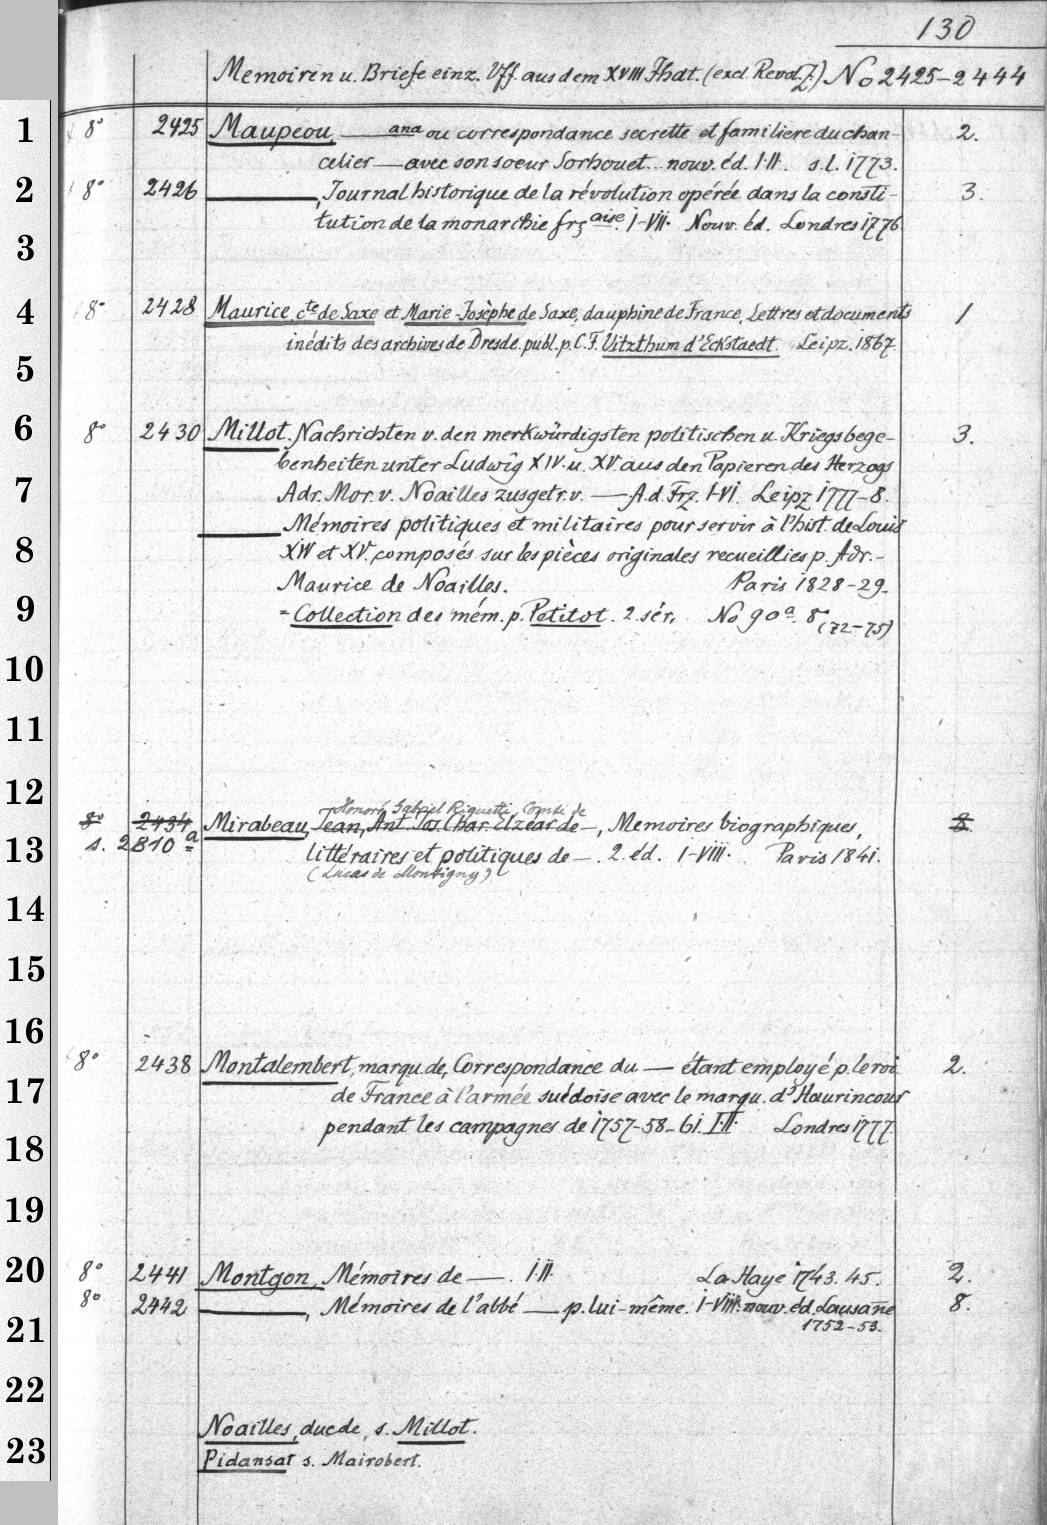 130
Memoiren u. Briefe einz. Vff. aus dem XVIII Jhdt. (excl. Revol. Z.) No 2425-2444
1 8° 2425 Maupeou —ana ou correspondance secrette et familiere du chan- 2.
celier — avec son soeur Sorhouet... nouv. éd. I-II. s.l. 1773.
2 8° 2426 ———, Journal historique de la révolution opérée dans la consti- 3.
tution de la monarchie frçaise. I-VII. Nouv. éd. Londres 1776.
3
4 8° 2428 Maurice, cte de Saxe et Marie-Josèphe de Saxe, dauphine de France, Lettres et documents 1
inédits des archives de Dresde. publ. p. C. F. Vitzthum d'Eckstaedt. Leipz. 1867.
5
6 8° 2430 Millot. Nachrichten v. den merkwürdigsten politischen u. Kriegsbege- 3.
benheiten unter Ludwig XIV. u. XV. aus den Papieren des Herzogs
7 Adr. Mor. v. Noailles zusgetr. v. — A. d. Frz. I-VI. Leipz 1777-8.
——— Mémoires politiques et militaires pour servir à l'hist. de Louis
8 XIV et XV, composés sur les pièces originales recueillies p. Adr.-
Maurice de Noailles. Paris 1828-29.
9 = Collection des mém. p. Petitot. 2. sér. No 90a. 8° (72-75)
10
11
12
Honoré Gabriel Riquetti, Comte de
8° 2434 Mirabeau, Jean, Ant. Jos. Char. Elzéar de —, Memoires biographiques, 8.
13 s. 2810a littéraires et politiques de —. 2. éd. I-VIII. Paris 1841.
(Lucas de Montigny)
14
15
16
8° 2438 Montalembert, marqu. de, Correspondance du — étant employé p. le roi 2.
17 de France à l'armée suédoise avec le marqu. d'Havrincour
pendant les campagnes de 1757-58-61. I-II. Londres 1777.
18
19
20 8° 2441 Montgon, Mémoires de —. I-II. La Haye 1743. 45. 2.
8° 2442 ———, Mémoires de l'abbé — p. lui-même. I-VIII. nouv. éd. Lausanne 8.
21 1752-53.
22
Noailles, duc de, s. Millot.
23 Pidansat s. Mairobert.